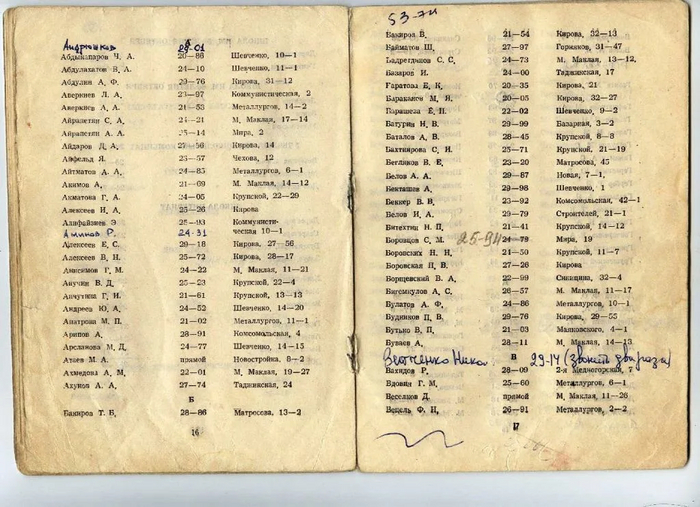 Андрюшков 28-01
Абдывапаров Ч. А. 20—86 Шевченко, 10—1
Абдулахатов В. А. 24—10 Шевченко, 11—1
Абдулин А. Ф. 29—76 Кирова, 31—12
Аверкиев Л. А. 23—97 Коммунистическая, 2
Аверкиев А. А. 21—53 Металлургов, 14—2
Айрапетян С. А. 21—21 М. Маклая, 17—14
Айрапетян А. А. 25—14 Мира, 2
Айдаров Д. А. 27—56 Кирова, 14
Айфельд Я. 23—57 Чехова, 12
Айтматов А. А. 24—85 Металлургов, 6—1
Акимов А. 21—69 М. Маклая, 14—12
Акматова Г. А. 24—05 Крупской, 22—29
Алексеев И. А. 25—26 Кирова
Алифайзиев Э. 25—93 Коммунисти-
ческая 10—1
Аминов Р. 24-31
Алексеев Е. С. 29—18 Кирова, 27—56
Алексеев В. И. 25—72 Кирова, 28—17
Анисимов Г. М. 24—22 М. Маклая, 11—21
Анучин В. Д. 25—23 Крупской, 22—4
Анчутина Г. И. 21—61 Крупской, 13—13
Андреев Ю. А. 24—52 Шевченко, 14—20
Апатрова М. П. 21—02 Металлургов, 11—1
Арипов А. 28—91 Комсомольская, 4
Арсланова М. Д. 24—77 Шевченко, 14—15
Атаев М. А. прямой Новостройка, 8—2
Ахмедова А. М. 22—01 М. Маклая, 19—27
Ахунов А. А. 27—74 Таджинская, 24
Б
Бакиров Т. Б. 28—86 Матросова, 13—2
16
53-74
Бакиров В. 21—54 Кирова, 32—13
Байматов Ш. 27—97 Горняков, 31—47
Бадретдинов С. С. 24—73 М. Маклая, 13—12.
Базаров И. 24—00 Таджинская, 17
Гаратова Е. К. 20—35 Кирова, 21
Барабанов М. Я. 20—05 Кирова, 32—27
Баришева Е. П. 22—02 Шевченко, 9—2
Батурин Н. В. 29—99 Базарная, 3—2
Баталов А. В. 28—45 Крупской, 8—8
Бахтиярова С. И. 25—71 Крупской, 21—19
Бегликов В. Е. 23—20 Матросова, 45
Белов А. А. 29—87 Новая, 7—1,
Бекташев А. 29—98 Шевченко, 1
Беккер В. В. 23—92 Комсомольская, 42—1
Белов И. А. 29—79 Строителей, 21—1
Битехтин Н. П. 21—41 Крупской, 14—12
Боровцов С. М. 25-94 24—78 Мира, 19
Боровских Н. И. 21—50 Крупской, 11—7
Боровская П. В. 27—26 Кирова
Борщевский В. А. 22—99 Синицина, 32—4
Бигсмкулов А. С. 26—57 М. Маклая, 11—17
Булатов А. Ф. 24—86 Металлургов, 10—1
Будников П. В. 29—76 Кирова, 29—55
Бутько В. П. 21—03 Маяковского, 4—1
Буваев А. 28—11 М. Маклая, 14—13
В 29-14 (звонить два раза)
Вахидов Р. 28—09 2-я Медногорский, 7
Вдовин Г. М. 25—60 Металлургов, 6—1
Веселков Д. прямой М. Маклая, 11—26
Вецель Ф. И. 26—91 Металлургов, 2—2
17